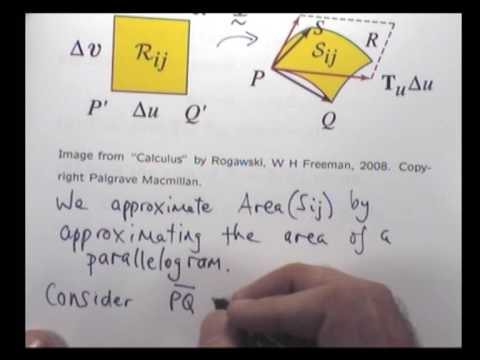 Δv
R_ij
P' Δu Q'
S
R
S_ij
P
T_uΔu
Q
Image from "Calculus" by Rogawski, W H Freeman, 2008. Copy-
right Palgrave Macmillan.
We approximate Area(Sij) by
approximating the area of a
parallelogram.
Consider PQ